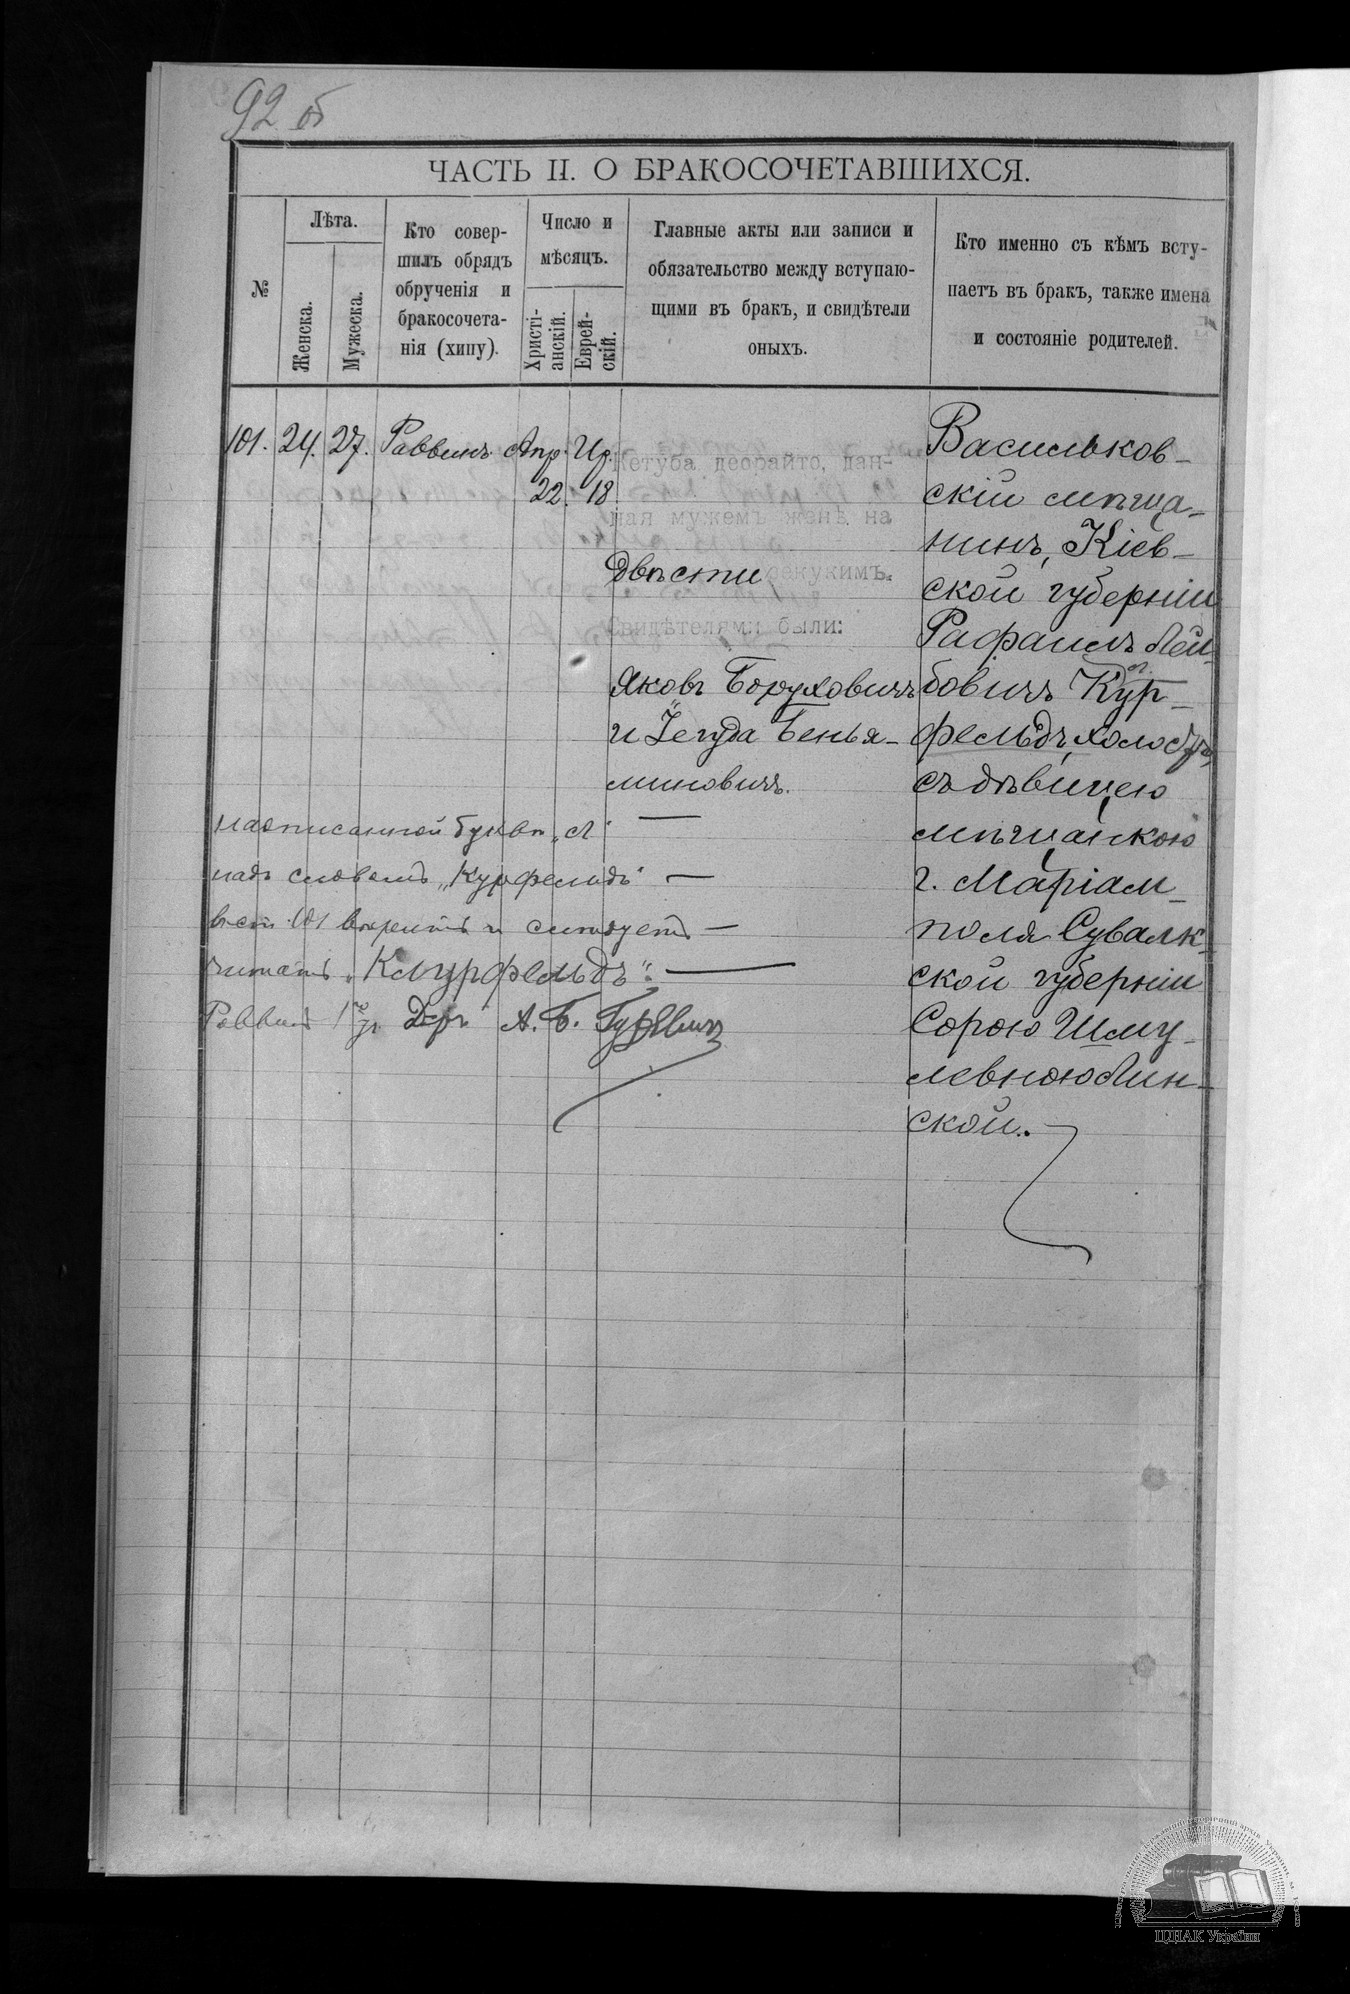 92 об
ЧАСТЬ II. О БРАКОСОЧЕТАВШИХСЯ.
№
Лѣта.
Женска.
Мужеска.
Кто совер-
шилъ обрядъ
обрученія и
бракосочета-
нія (хипу).
Число и
мѣсяцъ.
Христі-
анскій.
Еврей-
скій.
Главные акты или записи и
обязательство между вступаю-
щими въ бракъ, и свидѣтели
оныхъ.
Кто именно съ кѣмъ всту-
паетъ въ бракъ, также имена
и состояніе родителей.
101. 24. 27. Раввинъ Апр. Ир.
22. 18.
Кетуба деорайто, дан-
ная мужемъ женѣ на
двѣсти зекукимъ.
Свидѣтелями были:
Яковъ Боруховичъ
и Іегуда Бенья-
миновичъ.
Васильков-
скій мѣща-
нинъ, Кіев-
ской губерніи
Рафаилъ Лей-
бовичъ Кур-
л
фельдъ, холостъ,
съ дѣвицею
мѣщанкою
г. Маріам-
поля Сувалк-
ской губерніи
Сорою Шму-
левною Лин-
ской.
надписанной букве „л"
надъ словомъ „Курфельдъ"
въ ст. 101 верить и следуетъ
читать „Клурфельдъ".
Раввинъ г. Дерг А. Б. Гуревичъ
ЦДІАК України